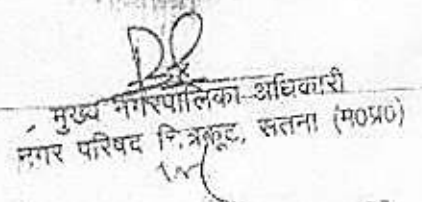 मुख्य नगरपालिका अधिकारी
नगर परिषद चित्रकूट, सतना (म०प्र०)